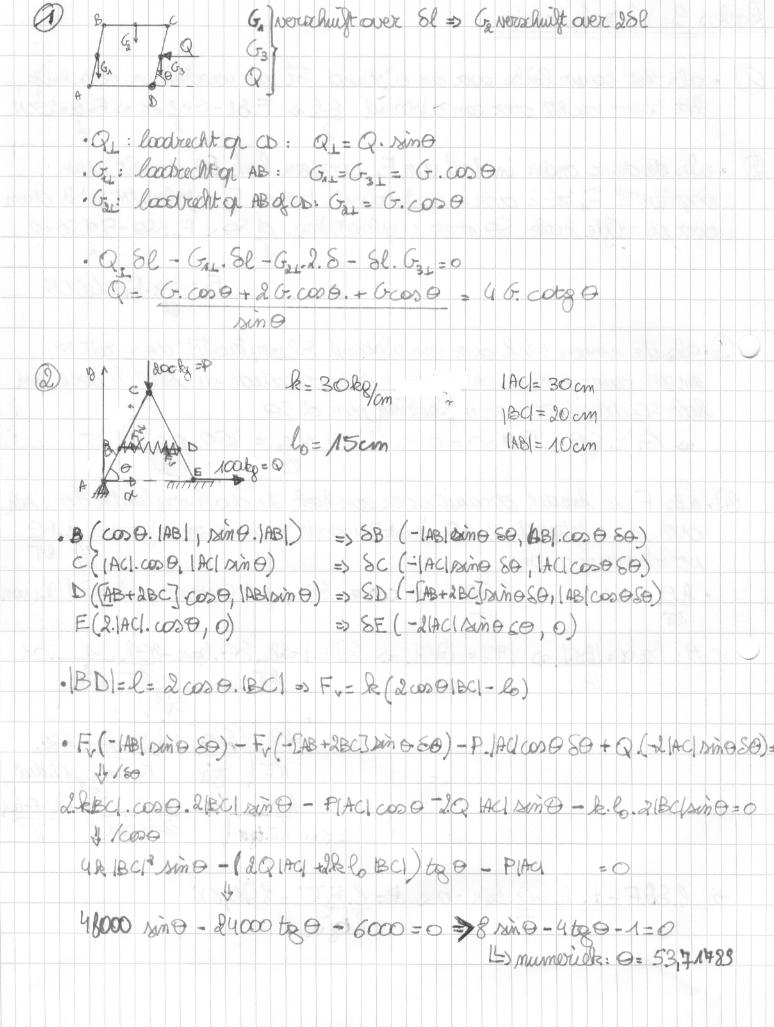 1
B C
G₂
Q
G₁ G₃
θ
A D
G₁ } verschuift over δl ⇒ G₂ verschuift over 2δl
G₃
Q
• Q⊥ : loodrecht op CD : Q⊥ = Q · sinθ
• G₁⊥ : loodrecht op AB : G₁⊥ = G₃⊥ = G · cosθ
• G₂⊥ : loodrecht op AB of CD : G₂⊥ = G · cosθ
• Q⊥ δl − G₁⊥ · δl − G₂⊥ · 2 · δ − δl · G₃⊥ = 0
Q = (G · cosθ + 2G · cosθ · + G cosθ) / sinθ = 4 G · cotg θ
2
y 200kg = P
C
B D
θ 100kg = Q
A x E
k = 30 kg/cm
l₀ = 15cm
|AC| = 30 cm
|BC| = 20 cm
|AB| = 10 cm
• B (cosθ · |AB| , sinθ · |AB|) ⇒ δB (−|AB| sinθ δθ, |AB| · cosθ δθ)
C (|AC| · cosθ, |AC| sinθ) ⇒ δC (−|AC| sinθ δθ, |AC| cosθ δθ)
D ([AB+2BC] cosθ, |AB| sinθ) ⇒ δD (−[AB+2BC] sinθ δθ, |AB| cosθ δθ)
E (2 · |AC| · cosθ, 0) ⇒ δE (−2|AC| sinθ δθ, 0)
• |BD| = l = 2 cosθ · |BC| ⇒ Fᵥ = k (2cosθ |BC| − l₀)
• Fᵥ (−|AB| sinθ δθ) − Fᵥ (−[AB+2BC] sinθ δθ) − P · |AC| cosθ δθ + Q · (−2|AC| sinθ δθ) =
⇓ /δθ
2 · k |BC| · cosθ · 2|BC| sinθ − P|AC| cosθ − 2Q |AC| sinθ − k · l₀ · 2|BC| sinθ = 0
⇓ /cosθ
4k |BC|² sinθ − (2Q |AC| + 2k l₀ |BC|) tgθ − P|AC| = 0
⇓
48000 sinθ − 24000 tgθ − 6000 = 0 ⇒ 8 sinθ − 4tgθ − 1 = 0
↳ numeriek : θ = 53,71489